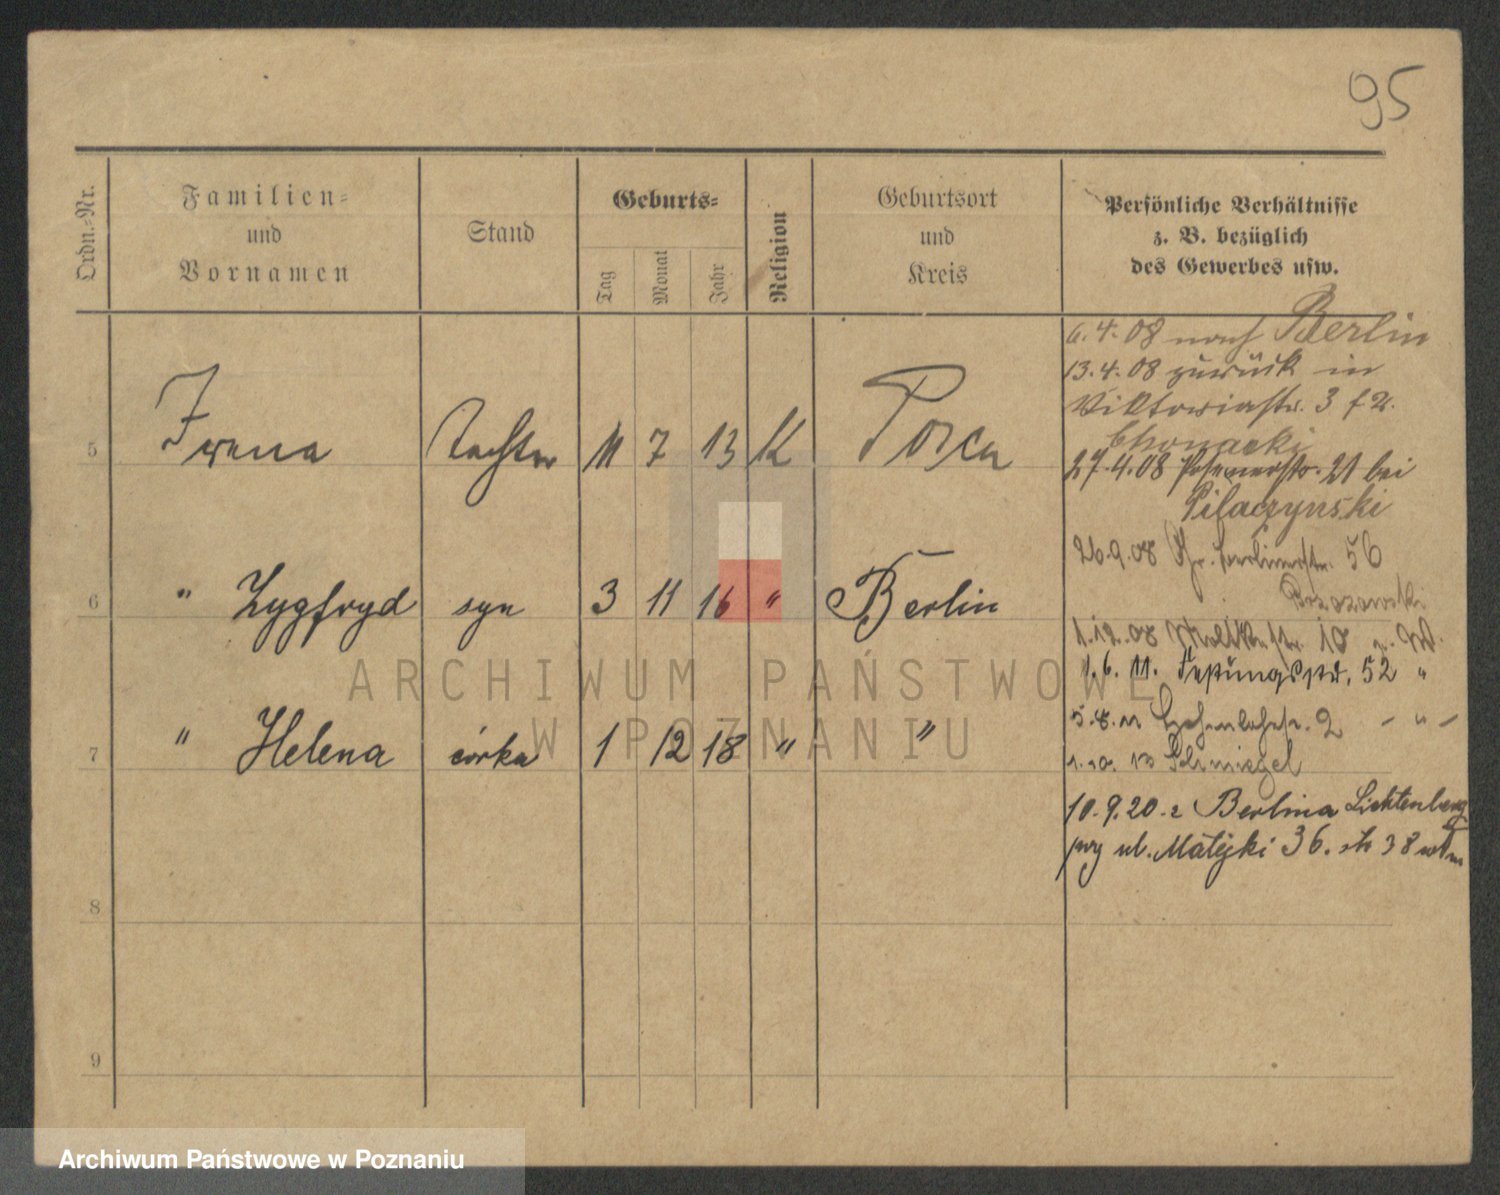 95
Ordn.-Nr.
Familien-
und
Vornamen
Stand
Geburts-
Tag
Monat
Jahr
Religion
Geburtsort
und
Kreis
Persönliche Verhältnisse
z. B. bezüglich
des Gewerbes usw.
6.4.08 nach Berlin
13.4.08 zurück in
Viktoriastr. 3
Chonacki
27.4.08 Posenerstr. 21 bei
Pilaczynski
5 Irena Tochter 11 7 13 K Posen
26.9.08 Gr. Berlinerstr. 56
6 " Zygfryd syn 3 11 16 " Berlin
1.12.08 Moltkestr. 10
1.6.11. Festungsstr. 52 "
7 " Helena córka 1 12 18 " "
5.8.11 Hohenlohestr. 2 - " -
1.10.13 Schmiegel
10.9.20 z Berlina Lichtenberg
ul. Matejki 36.
8
9
ARCHIWUM PAŃSTWOWE
W POZNANIU
Archiwum Państwowe w Poznaniu